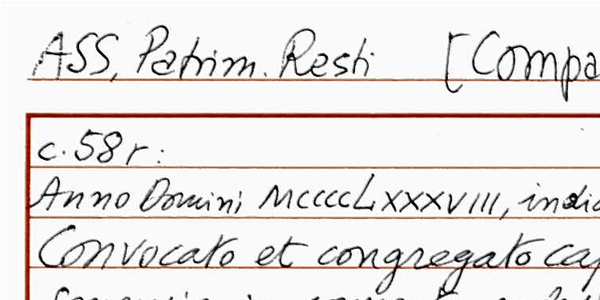 ASS, Patrim. Resti [Compa
c. 58 r:
Anno Domini MCCCCLXXXVIII, indi
Convocato et congregato cap